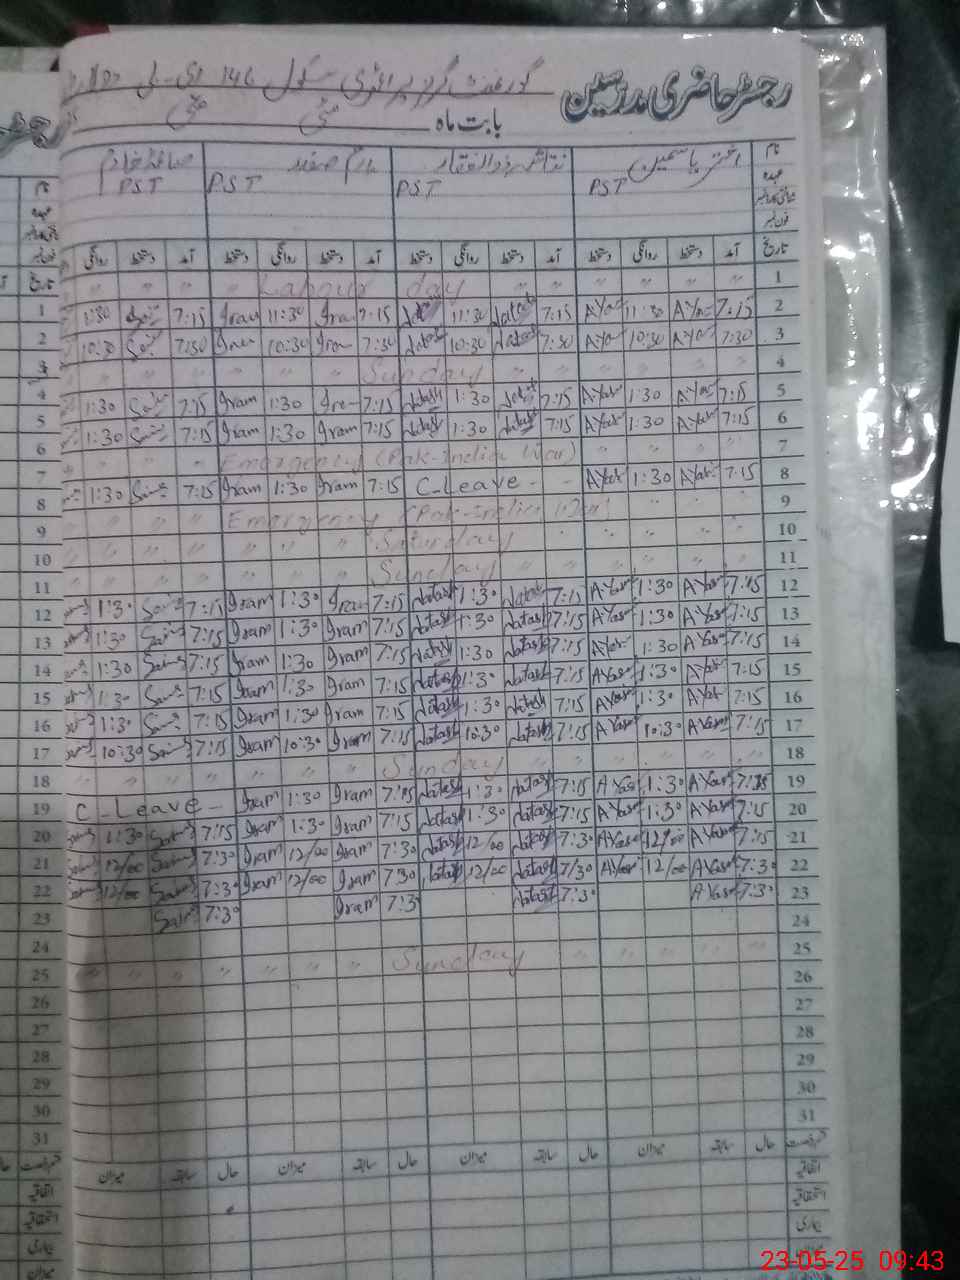 رجسٹر حاضری مدرسین گورنمنٹ گرلز پرائمری سکول 146
بابت ماہ مئی مئی
نام اختر یاسمین نتاشہ ذوالفقار ارم صفدر صائمہ خانم
عہدہ PST PST PST PST
شناختی کارڈ نمبر
فون نمبر
تاریخ آمد دستخط روانگی دستخط آمد دستخط روانگی دستخط آمد دستخط روانگی دستخط آمد دستخط روانگی
1 " " " " Labour day " " " "
2 7:15 A Yas 11:30 A Yas 7:15 Natash 11:30 Natash 7:15 Iram 11:30 Iram 7:15 Saim 1:30
3 7:30 A Yas 10:30 A Yas 7:30 Natash 10:30 Natash 7:30 Iram 10:30 Iram 7:30 Sai 10:30
4 " " " " Sunday " " " "
5 7:15 A Yas 1:30 A Yas 7:15 Natash 1:30 Natash 7:15 Iram 1:30 Iram 7:15 Saim 1:30
6 7:15 A Yas 1:30 A Yas 7:15 Natash 1:30 Natash 7:15 Iram 1:30 Iram 7:15 Saim 1:30
7 " " " " Emergency (Pak-India War) " " "
8 7:15 A Yas 1:30 A Yas C-Leave - - 7:15 Iram 1:30 Iram 7:15 Saim 1:30
9 " " " " Emergency (Pak-India War) " " "
10 " " " " Saturday " " " "
11 " " " " Sunday " " " "
12 7:15 A Yas 1:30 A Yas 7:15 Natash 1:30 Natash 7:15 Iram 1:30 Iram 7:15 Saim 1:30
13 7:15 A Yas 1:30 A Yas 7:15 Natash 1:30 Natash 7:15 Iram 1:30 Iram 7:15 Saim 1:30
14 7:15 A Yas 1:30 A Yas 7:15 Natash 1:30 Natash 7:15 Iram 1:30 Iram 7:15 Saim 1:30
15 7:15 A Yas 1:30 A Yas 7:15 Natash 1:30 Natash 7:15 Iram 1:30 Iram 7:15 Saim 1:30
16 7:15 A Yas 1:30 A Yas 7:15 Natash 1:30 Natash 7:15 Iram 1:30 Iram 7:15 Saim 1:30
17 7:15 A Yas 10:30 A Yas 7:15 Natash 10:30 Natash 7:15 Iram 10:30 Iram 7:15 Saim 10:30
18 " " " " Sunday " " " "
19 7:15 A Yas 1:30 A Yas 7:15 Natash 1:30 Natash 7:15 Iram 1:30 Iram C-Leave -
20 7:15 A Yas 1:30 A Yas 7:15 Natash 1:30 Natash 7:15 Iram 1:30 Iram 7:15 Saim 1:30
21 7:15 A Yas 12/00 A Yas 7:30 Natash 12/00 Natash 7:30 Iram 12/00 Iram 7:30 Saim 12/00
22 7:30 A Yas 12/00 A Yas 7/30 Natash 12/00 Natash 7:30 Iram 12/00 Iram 7:30 Saim 12/00
23 7:30 A Yas 7:30 Natash 7:30 Iram 7:30 Saim
24
25 " " " " Sunday " " " "
26
27
28
29
30
31
قسم رخصت حال سابقہ میزان حال سابقہ میزان حال سابقہ میزان حال سابقہ میزان
اتفاقیہ
استحقاقیہ
بیماری
23-05-25 09:43